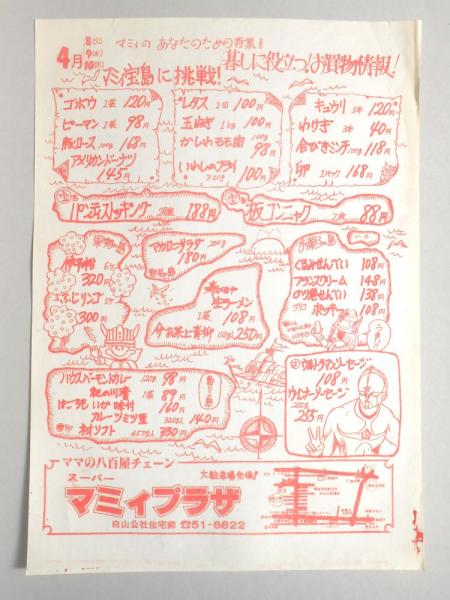 4月
8(火)
9(水)
10(木)
マミィの あなたのための特集!!
暮しに役立つ!お買物情報!
マミィ宝島に挑戦!
ゴボウ 1袋 120円
ピーマン 1袋 98円
豚ロース 100g 168円
アメリカンドーナツ
145円
レタス 1コ 100円
玉ねぎ 1kg 100円
かしわモモ肉 100g 98円
いわしのフライ
100円
キュウリ 3本 120円
わけぎ 3本 40円
合びきミンチ 100g 118円
卵 1パック 168円
パンティストッキング 188円
板コンニャク 2枚 88円
果物の島
伊予柑
320円
ふじリンゴ
300円
マカロニサラダ 200g
180円
惣菜の島
生ラーメン
1袋 108円
150g 250円
お菓子の島
くるみせんべい 108円
フランスクリーム 148円
のり巻せんべい 138円
グリコ ポッキー 108円
ハウスバーモントカレー 120g 98円
紀の川漬 1袋 89円
はごろも いか味付 160円
フルーツミツ豆 320g 140円
雪印 ネオソフト 450g 330円
ウルトラマンソーセージ
108円
ウインナーソーセージ
255円
ママの八百屋チェーン
スーパー
マミィプラザ
白山公社住宅前 ☎51-6822
大駐車場完備!